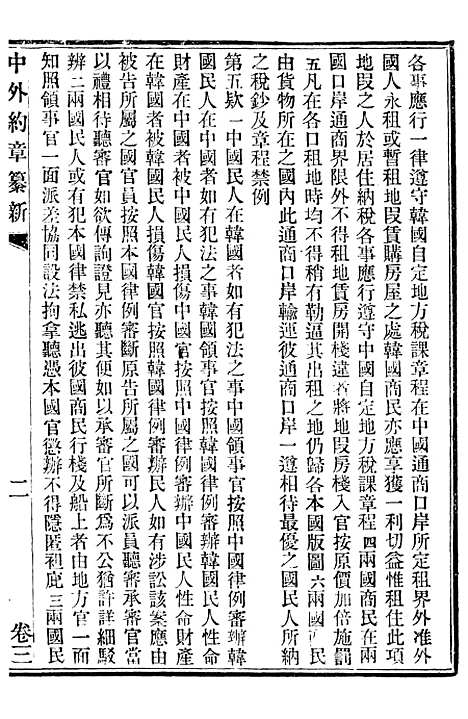 各事應行一律遵守韓國自定地方稅課章程在中國通商口岸所定租界外准外
國人永租或暫租地叚賃購房屋之處韓國商民亦應享獲一利切益惟租住此項
地叚之人於居住納稅各事應行遵守中國自定地方稅課章程四兩國商民在
國口岸通商界限外不得租地賃房開棧違者將地叚房棧入官按原價加倍施罰
五凡在各口租地時均不得稍有勒逼其出租之地仍歸各本國版圖六兩國 民
由貨物所在之國內此通商口岸輸運彼通商口岸一遵相待最優之國人民所納
之稅鈔及章程禁例
第五欵一中國民人在韓國者如有犯法之事中國領事官按照中國律例審辦韓
國民人在中國者如有犯法之事韓國領事官按照韓國律例審辦中國民人性命
財產在中國者被中國民人損傷中國官按照中國律例審辦韓國民人性命財產
在韓國者被韓國民人損傷韓國官按照韓國律例審辦民人如有涉訟該案應由
被告所屬之國官員按照本國律例審斷原告所屬之國可以派員聽審承審官當
以禮相待聽審官如欲傳詢證見亦聽其便如以承審官所斷爲不公猶許詳細駁
辨二兩國民人或有犯本國律禁私逃出彼國商民行棧及船上者由地方官一面
知照領事官一面派差協同設法拘拿聽憑本國官懲辦不得隱匿袒庇三兩國民
中外約章纂新
二
卷三